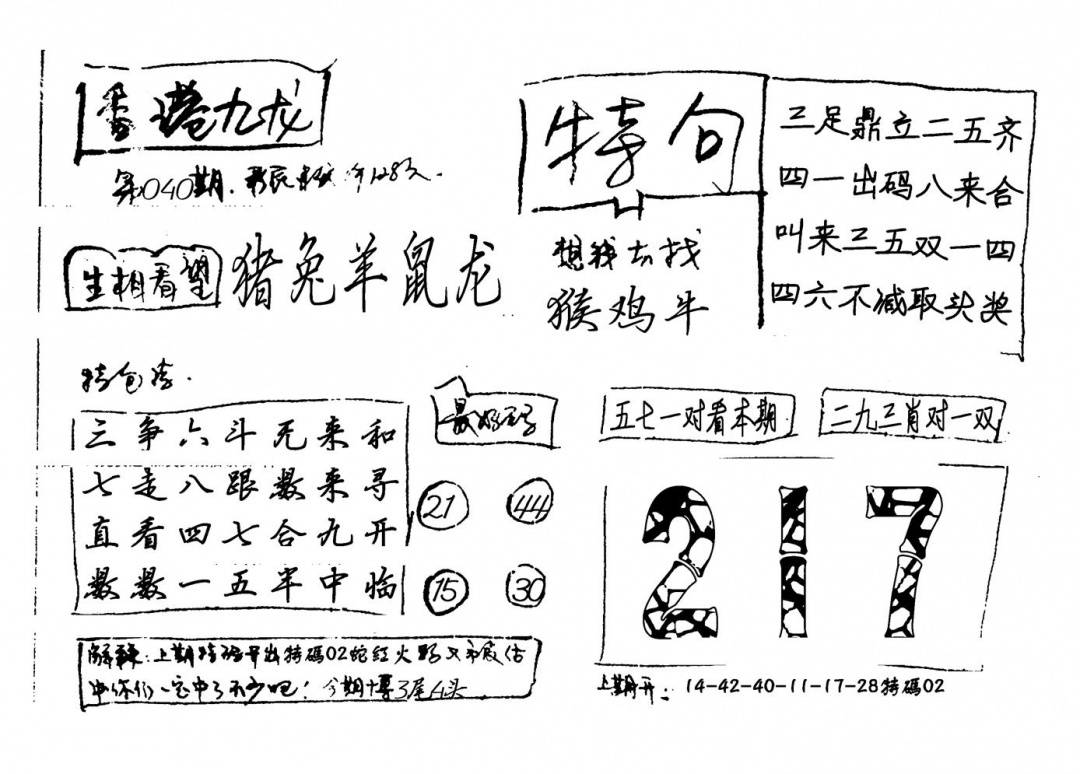 香港九龙
第040期
特句
三足鼎立二五齐
四一出码八来合
叫来三五双一四
四六不减取头奖
生相看望
猪兔羊鼠龙
想我去找
猴鸡牛
特包法.
三争六斗无来和
七走八跟数来寻
直看四七合九开
数数一五半中临
21 44
15 30
五七一对看本期
二九三肖对一双
217
解释:上期特码开出特碼02蛇红火
中你们一定中了不少吧!今期博3尾4头
上期开: 14-42-40-11-17-28特碼02